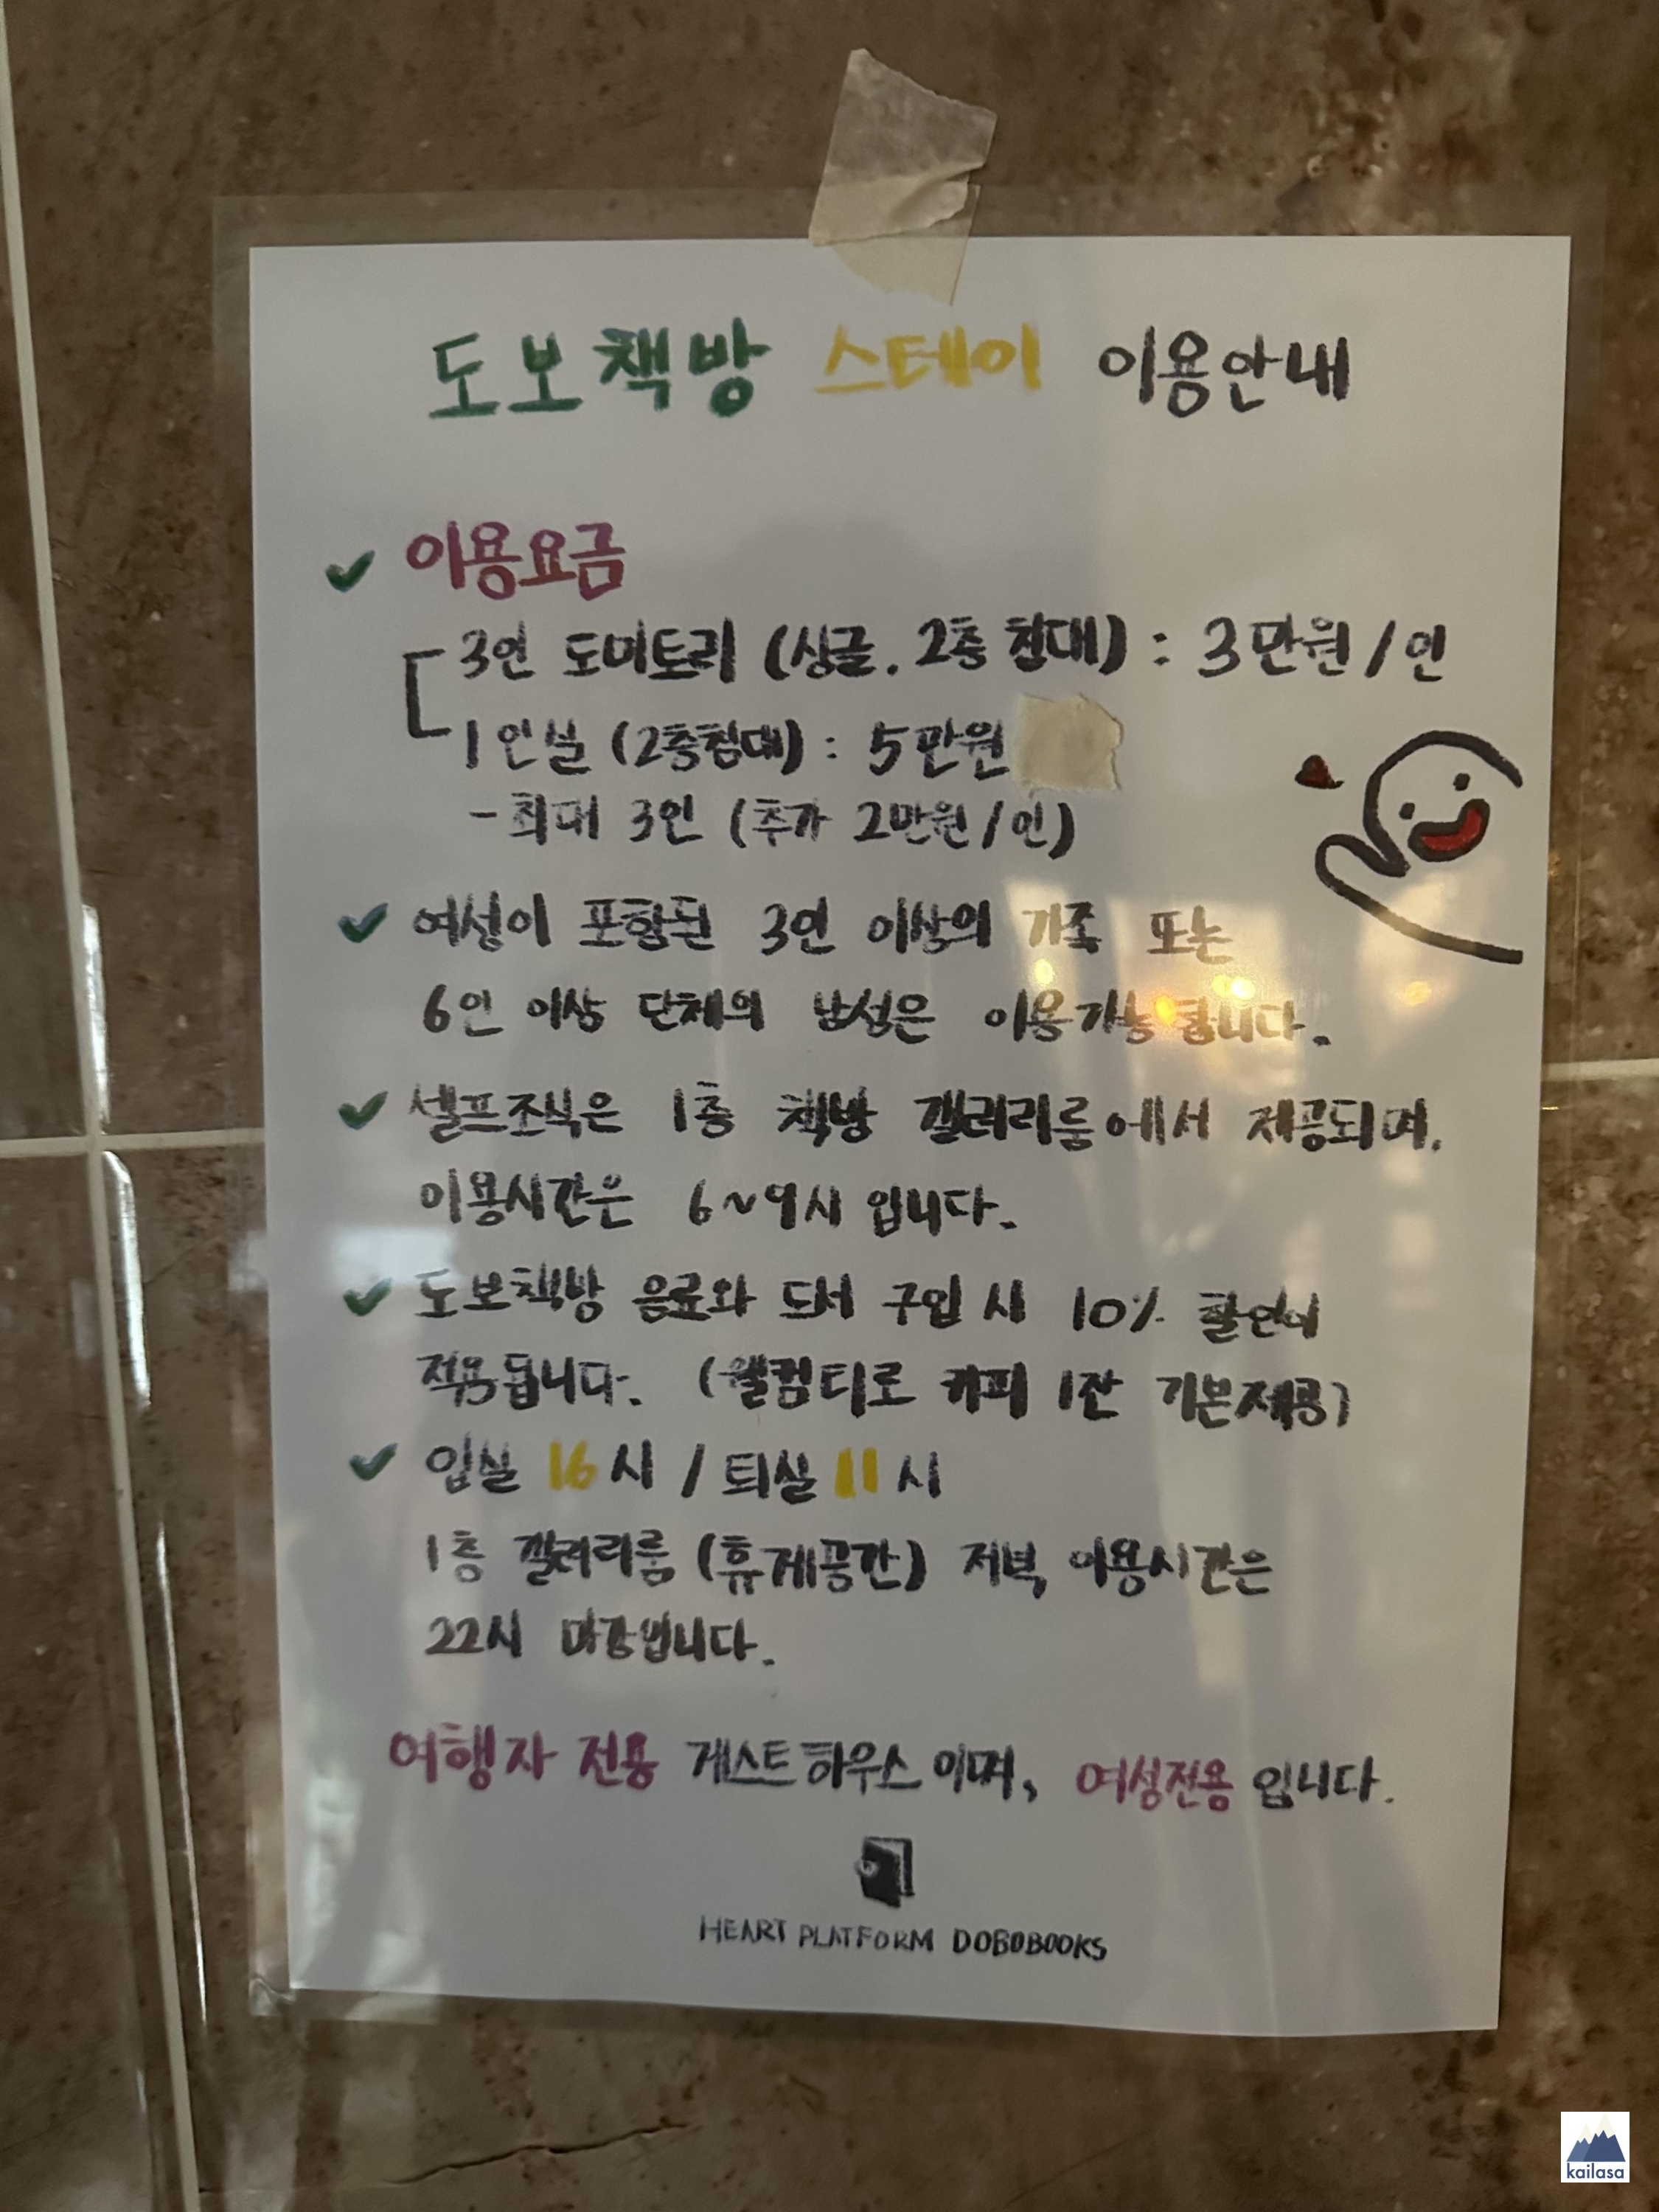 도보책방 스테이 이용안내
✓ 이용요금
3인 도미토리 (싱글. 2층 침대) : 3만원/인
1인실 (2층침대) : 5만원
- 최대 3인 (추가 2만원/인)
✓ 여성이 포함된 3인 이상의 가족 또는
6인 이상 단체의 남성은 이용가능합니다.
✓ 셀프조식은 1층 책방 갤러리룸에서 제공되며,
이용시간은 6~9시 입니다.
✓ 도보책방 음료와 도서 구입 시 10% 할인이
적용됩니다. (웰컴티로 커피 1잔 기본제공)
✓ 입실 16시 / 퇴실 11시
1층 갤러리룸 (휴게공간) 저녁 이용시간은
22시 마감입니다.
여행자 전용 게스트하우스 이며, 여성전용 입니다.
HEART PLATFORM DOBOBOOKS
kailasa